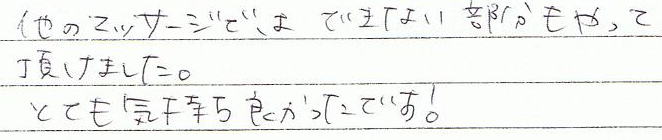 他のマッサージでは できない 部分もやって
頂けました。
とても気持ち良かったです!